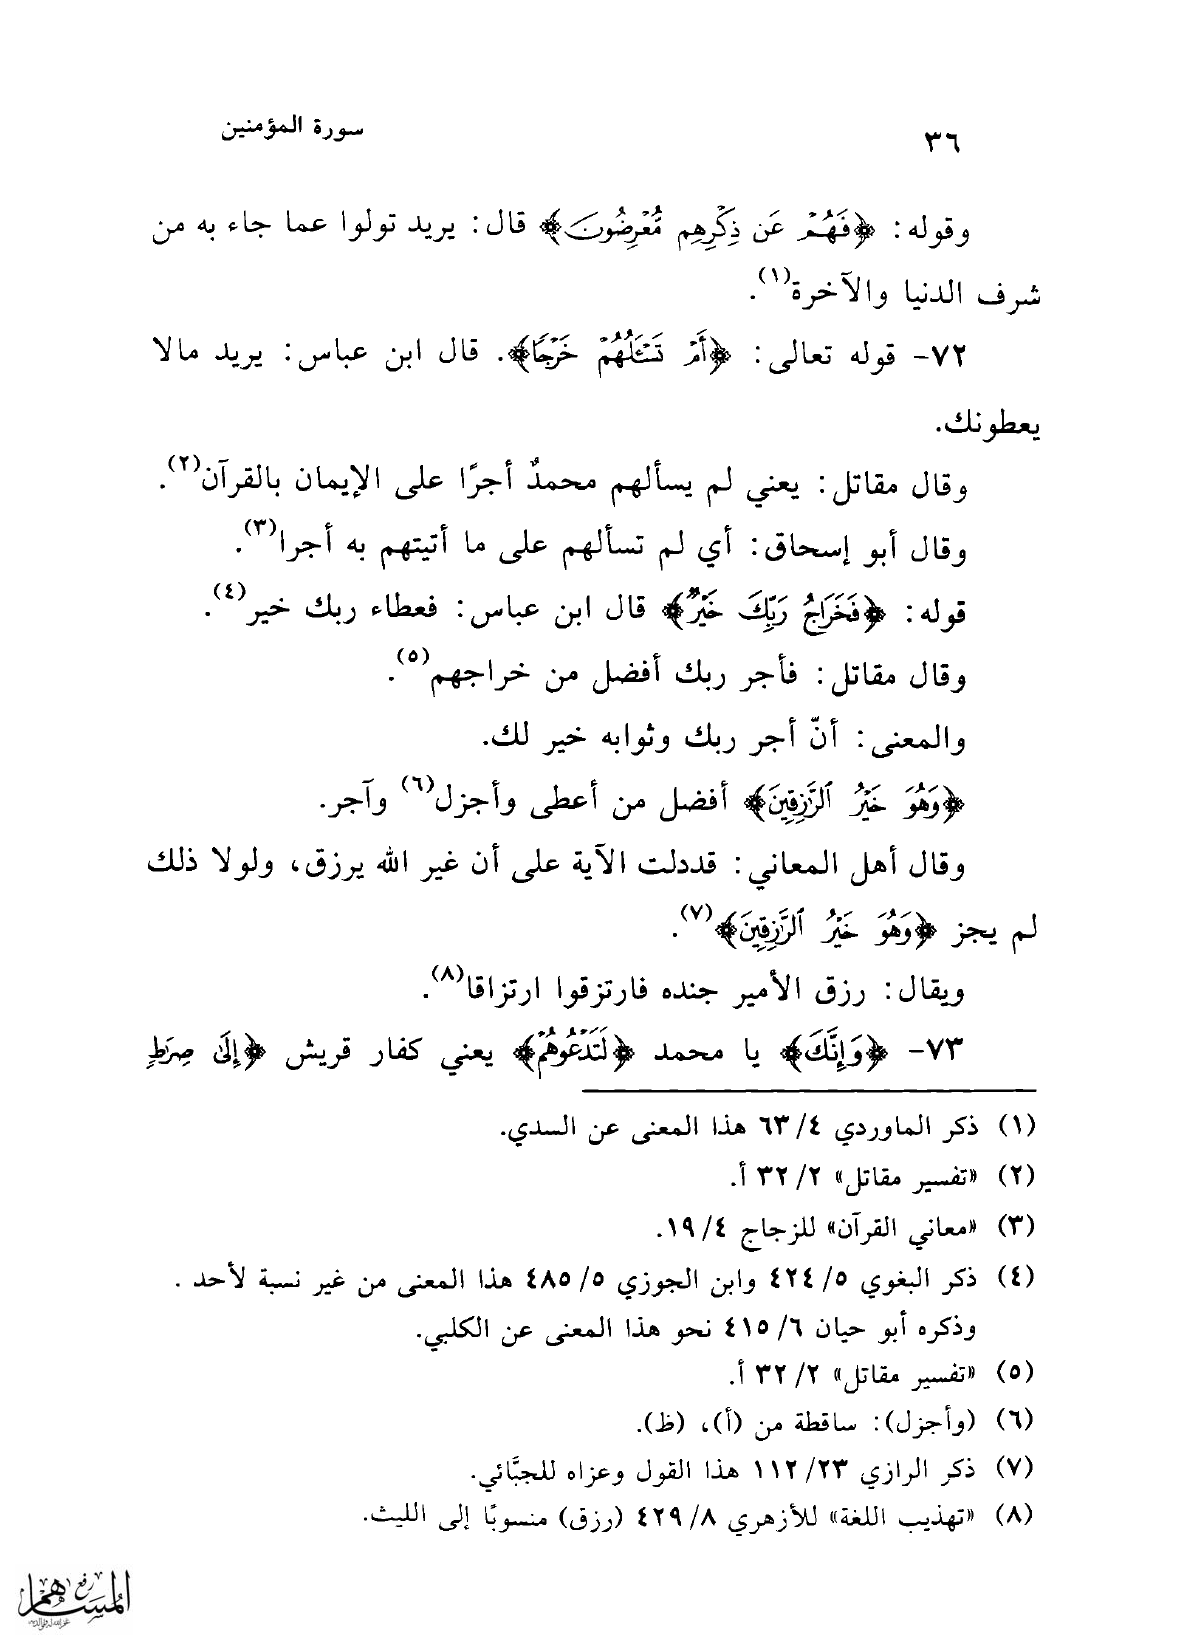 ٣٦
سورة المؤمنين
وقوله: ﴿فَهُمْ عَن ذِكْرِهِم مُّعْرِضُونَ﴾ قال: يريد تولوا عما جاء به من
شرف الدنيا والآخرة(١).
٧٢- قوله تعالى: ﴿أَمْ تَسْـَٔلُهُمْ خَرْجًا﴾. قال ابن عباس: يريد مالا
يعطونك.
وقال مقاتل: يعني لم يسألهم محمدٌ أجرًا على الإيمان بالقرآن(٢).
وقال أبو إسحاق: أي لم تسألهم على ما أتيتهم به أجرا(٣).
قوله: ﴿فَخَرَاجُ رَبِّكَ خَيْرٌ﴾ قال ابن عباس: فعطاء ربك خير(٤).
وقال مقاتل: فأجر ربك أفضل من خراجهم(٥).
والمعنى: أنّ أجر ربك وثوابه خير لك.
﴿وَهُوَ خَيْرُ ٱلرَّٰزِقِينَ﴾ أفضل من أعطى وأجزل(٦) وآجر.
وقال أهل المعاني: قددلت الآية على أن غير الله يرزق، ولولا ذلك
لم يجز ﴿وَهُوَ خَيْرُ ٱلرَّٰزِقِينَ﴾(٧).
ويقال: رزق الأمير جنده فارتزقوا ارتزاقا(٨).
٧٣- ﴿وَإِنَّكَ﴾ يا محمد ﴿لَتَدْعُوهُمْ﴾ يعني كفار قريش ﴿إِلَىٰ صِرَٰطٍ
(١) ذكر الماوردي ٤/ ٦٣ هذا المعنى عن السدي.
(٢) «تفسير مقاتل» ٢/ ٣٢ أ.
(٣) «معاني القرآن» للزجاج ٤/ ١٩.
(٤) ذكر البغوي ٥/ ٤٢٤ وابن الجوزي ٥/ ٤٨٥ هذا المعنى من غير نسبة لأحد .
وذكره أبو حيان ٦/ ٤١٥ نحو هذا المعنى عن الكلبي.
(٥) «تفسير مقاتل» ٢/ ٣٢ أ.
(٦) (وأجزل): ساقطة من (أ)، (ظ).
(٧) ذكر الرازي ٢٣/ ١١٢ هذا القول وعزاه للجبَّائي.
(٨) «تهذيب اللغة» للأزهري ٨/ ٤٢٩ (رزق) منسوبًا إلى الليث.